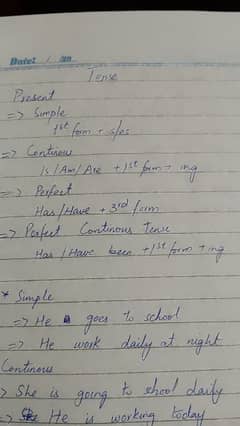 Date: / /
Tense
Present
=> Simple
1st form + s/es
=> Continew
Is/Am/Are + 1st form + ing
=> Perfect
Has/Have + 3rd form
=> Perfect Continous Tense
Has / Have been + 1st form + ing
* Simple
=> He goes to school
=> He work daily at night
Continous
> She is going to shool daily
=> He is working today